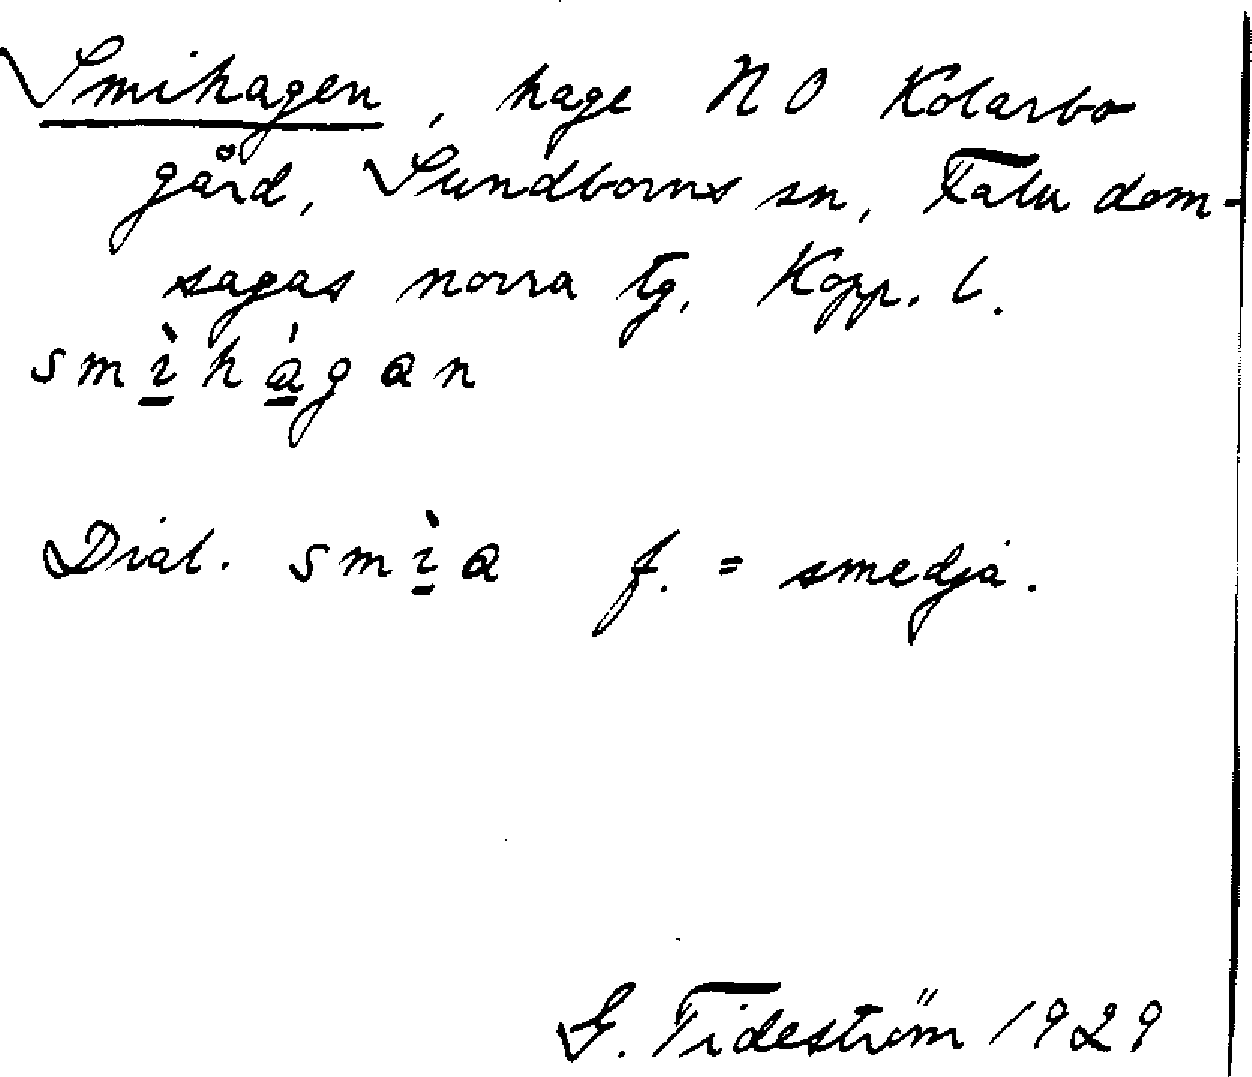 Smihagen, hage NO Kolarbo
gård, Sundborns sn, Falu dom-
sagas norra tg, Kopp. l.
smì̱há̱gan
Dial. smì̱a f. = smedja.
G. Tideström 1929